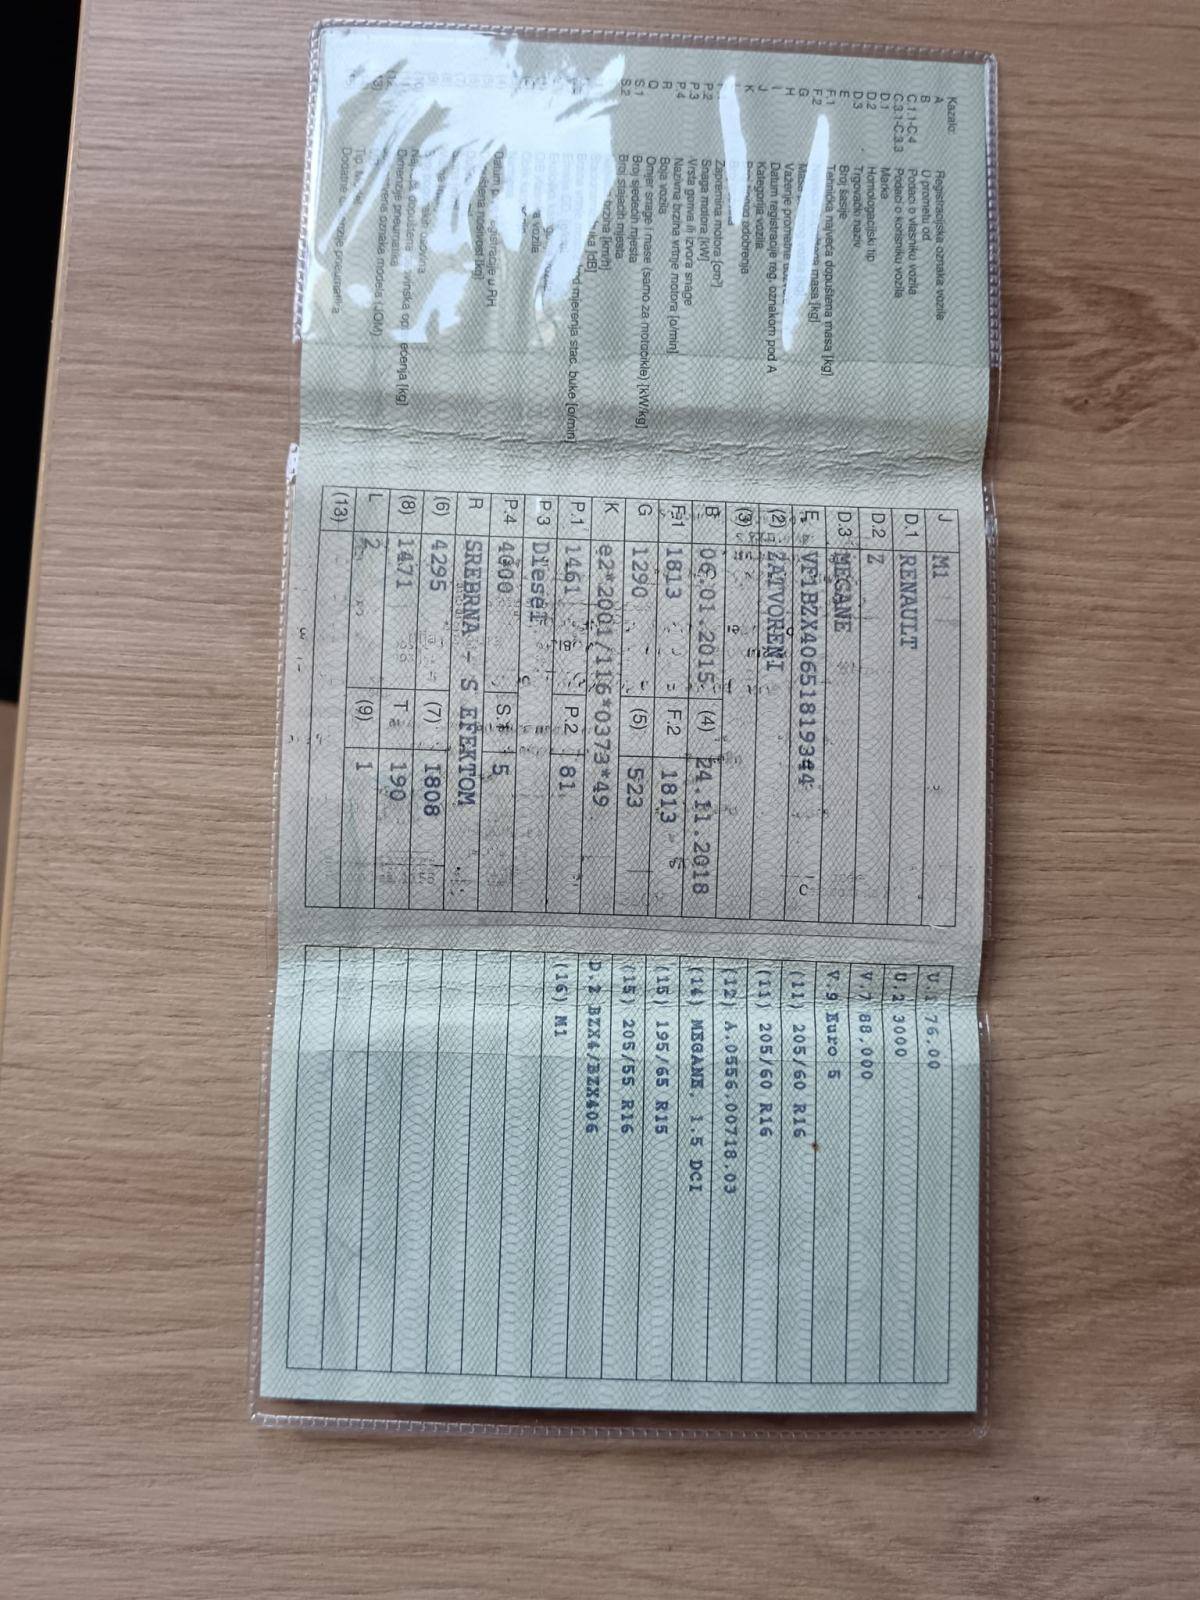 Kazalo:
A Registracijska oznaka vozila
B U prometu od
C.1.1-C.4 Podaci o vlasniku vozila
C.3.1-C.3.3 Podaci o korisniku vozila
D.1 Marka
D.2 Homologacijski tip
D.3 Trgovački naziv
E Broj šasije
F.1 Tehnička najveća dopuštena masa [kg]
F.2 masa [kg]
G Masa
H Važenje prometne
I Datum registracije reg. oznakom pod A
J Kategorija vozila
K odobrenja
Zapremina motora [cm³]
P.2 Snaga motora [kW]
P.3 Vrsta goriva ili izvora snage
P.4 Nazivna brzina vrtnje motora [o/min]
R Boja vozila
Q Omjer snage i mase (samo za motocikle) [kW/kg]
S.1 Broj sjedećih mjesta
S.2 Broj stajaćih mjesta
brzina [km/h]
[dB]
mjerenja stac. buke [o/min]
vozila
registracije u RH
nosivost [kg]
[kg]
Dimenzije pneumatika
oznaka modela (JOM)
Tip
pneumatika
J M1
D.1 RENAULT
D.2 Z
D.3 MEGANE
E VF1BZX406518193
(2) ZATVORENI
(3)
B 06.01.2015. (4) 24.11.2018
F.1 1813 F.2 1813
G 1290 (5) 523
K e2*2001/116*0373*49
P.1 1461 P.2 81
P.3 Diesel
P.4 4000 S.1 5
R SREBRNA - S EFEKTOM
(6) 4295 (7) 1808
(8) 1471 T 190
L 2 (9) 1
(13)
U.1 76,00
U.2 3000
V.7 88,000
V.9 Euro 5
(11) 205/60 R16
(11) 205/60 R16
(12) A.0556.00718.03
(14) MEGANE, 1.5 DCI
(15) 195/65 R15
(15) 205/55 R16
D.2 BZX4/BZX406
(16) M1